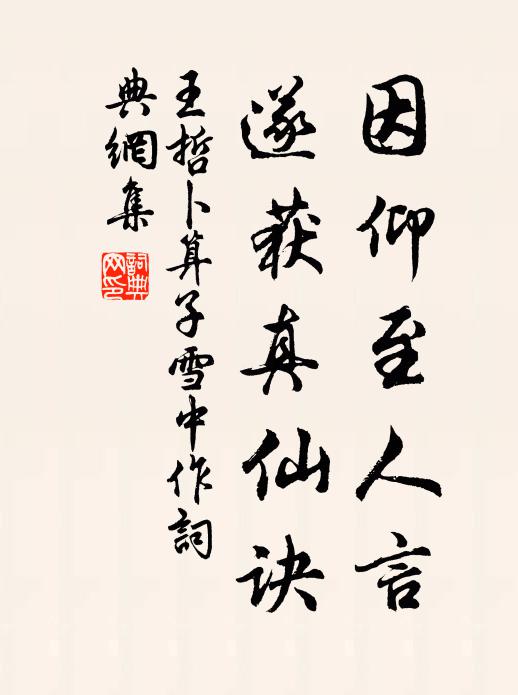 因仰至人言
遂获真仙诀
王哲卜算子雪中作詞
典網集
詞典
网印